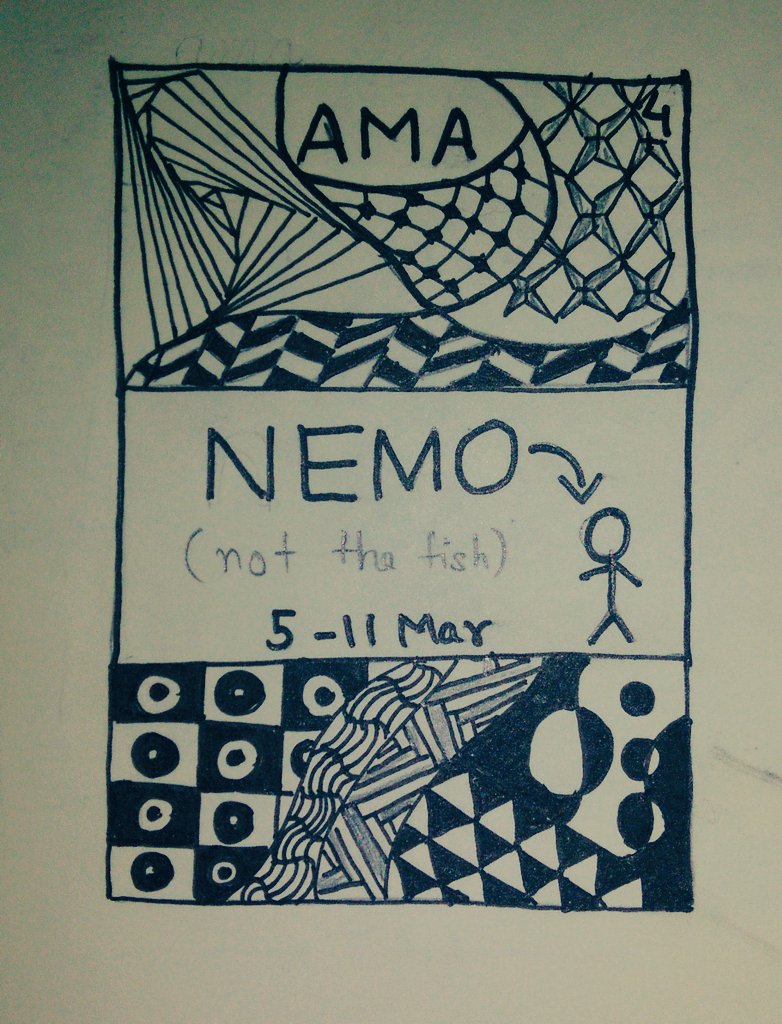 AMA
NEMO
(not the fish)
5-11 Mar